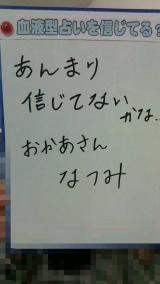 血液型占いを信じてる?
あんまり
信じてない
かな…
おかあさん
なつみ